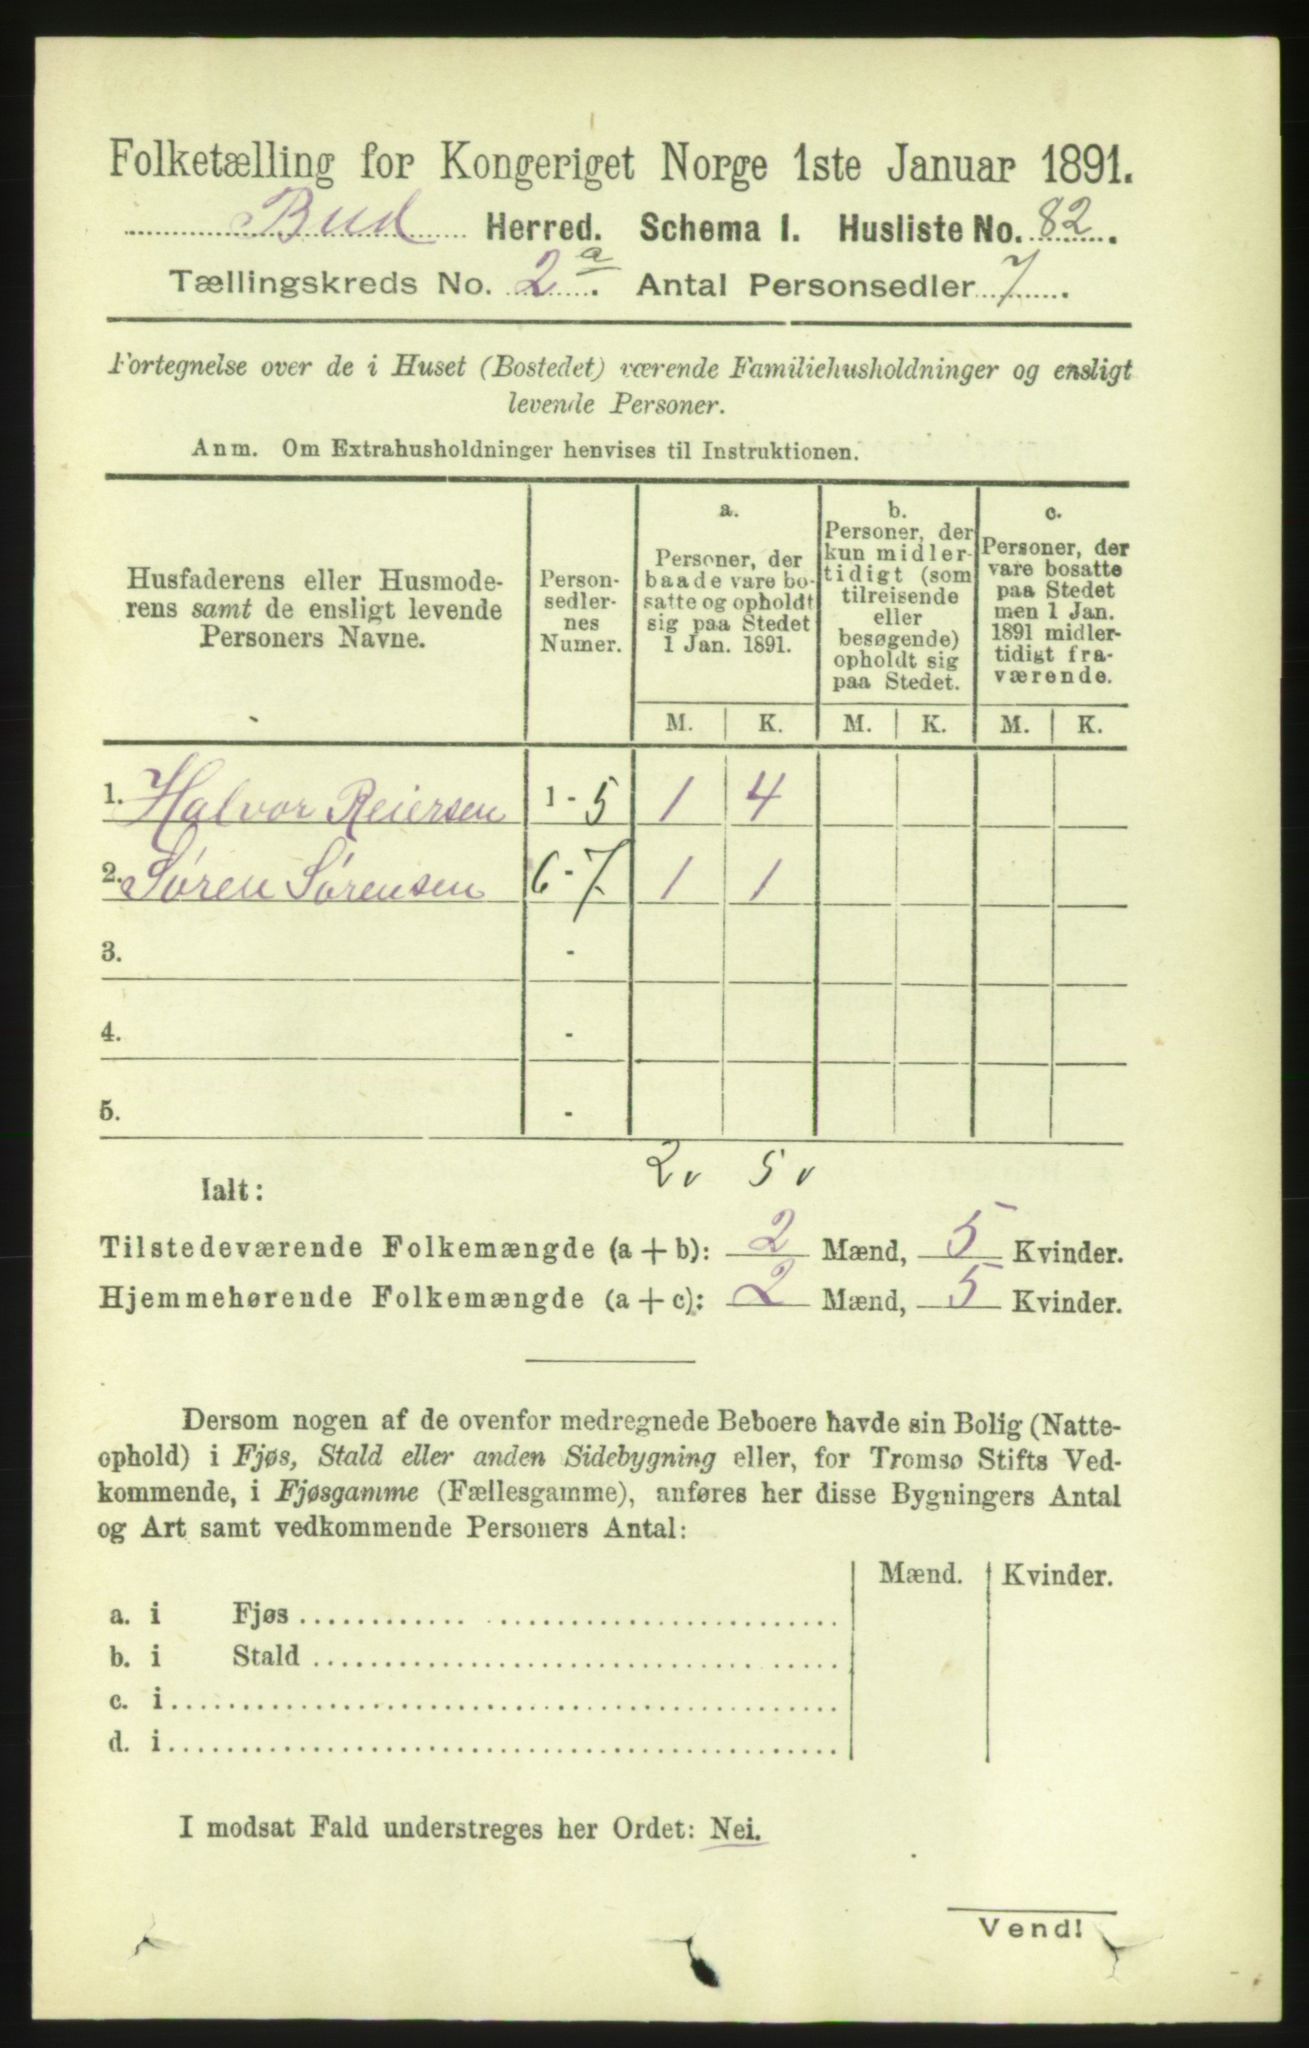 Folketælling for Kongeriget Norge 1ste Januar 1891.
Bud Herred. Schema I. Husliste No. 82.
Tællingskreds No. 2a. Antal Personsedler 7.
Fortegnelse over de i Huset (Bostedet) værende Familiehusholdninger og ensligt
levende Personer.
Anm. Om Extrahusholdninger henvises til Instruktionen.
Husfaderens eller Husmode-
rens samt de ensligt levende
Personers Navne.
Person-
sedler-
nes
Numer.
a.
Personer, der
baade vare bo-
satte og opholdt
sig paa Stedet
1 Jan. 1891.
b.
Personer, der
kun midler-
tidigt (som
tilreisende
eller
besøgende)
opholdt sig
paa Stedet.
c.
Personer, der
vare bosatte
paa Stedet
men 1 Jan.
1891 midler-
tidigt fra-
værende.
M. K. M. K. M. K.
1. Halvor Reiersen 1 - 5 1 4
2. Søren Sørensen 6 - 7 1 1
3. -
4. -
5. -
2 v 5 v
Ialt:
Tilstedeværende Folkemængde (a + b): 2 Mænd, 5 Kvinder.
Hjemmehørende Folkemængde (a + c): 2 Mænd, 5 Kvinder.
Dersom nogen af de ovenfor medregnede Beboere havde sin Bolig (Natte-
ophold) i Fjøs, Stald eller anden Sidebygning eller, for Tromsø Stifts Ved-
kommende, i Fjøsgamme (Fællesgamme), anføres her disse Bygningers Antal
og Art samt vedkommende Personers Antal:
Mænd. Kvinder.
a. i Fjøs
b. i Stald
c. i
d. i
I modsat Fald understreges her Ordet: Nei.
Vend!